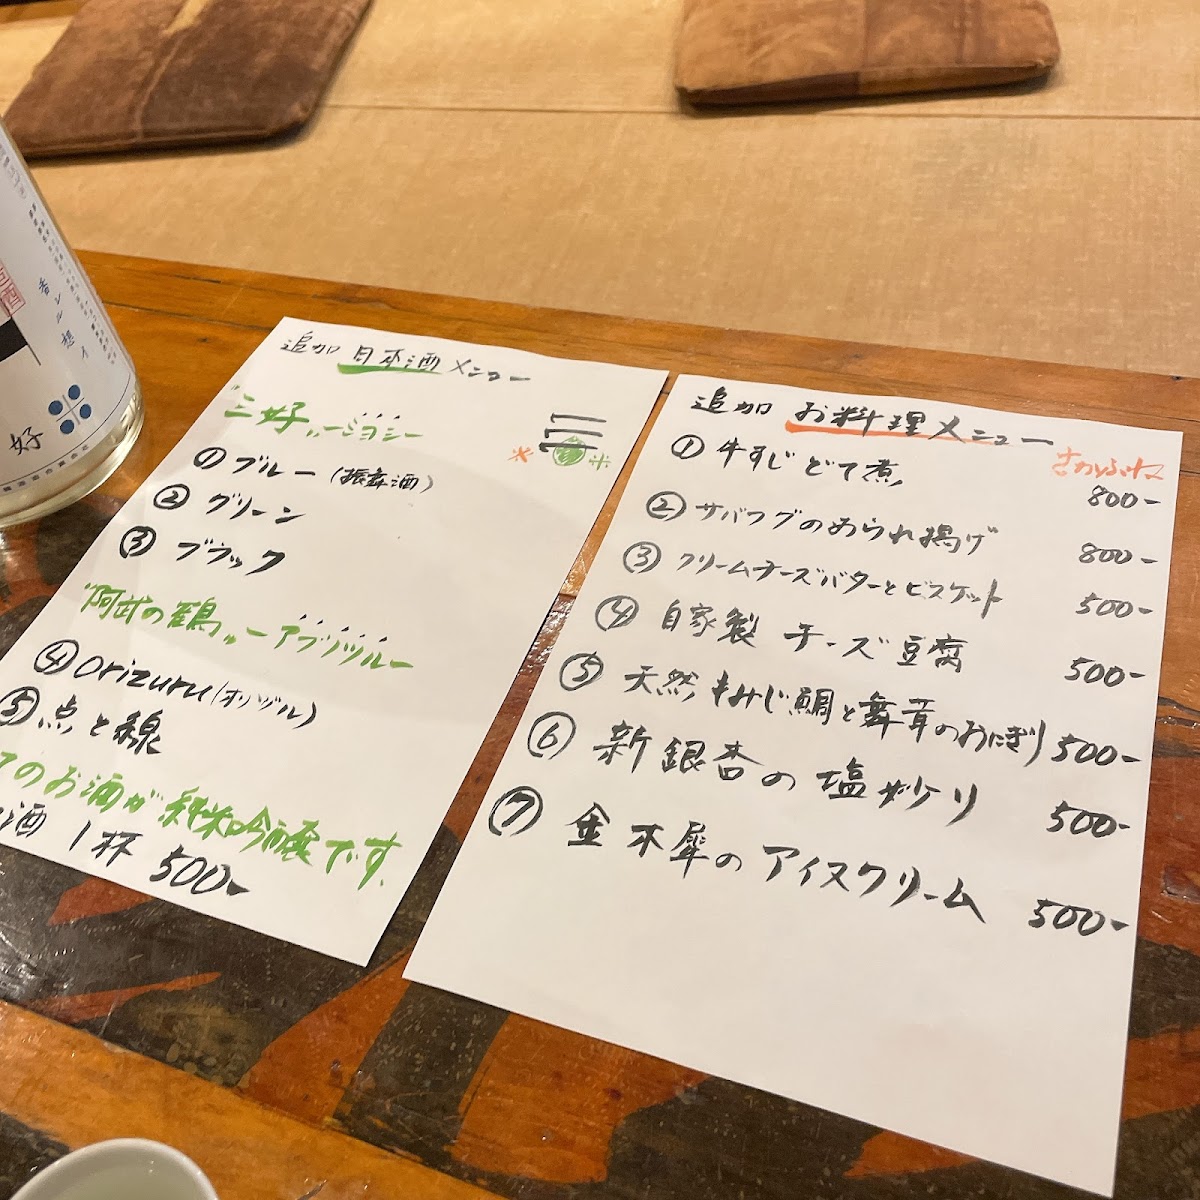 追加 日本酒メニュー
"三好〟ーミヨシー
① ブルー(振舞酒)
② グリーン
③ ブラック
"阿武の鶴〟ーアブノツルー
④ Orizuru(オリヅル)
⑤ 点と線
てのお酒が純米吟醸です。
酒 1杯 500-
追加 お料理メニュー
さかふね
① 牛すじどて煮 800-
② サバフグのあられ揚げ 800-
③ クリームチーズバターとビスケット 500-
④ 自家製 チーズ豆腐 500-
⑤ 天然もみじ鯛と舞茸のおにぎり 500-
⑥ 新銀杏の塩炒り 500-
⑦ 金木犀のアイスクリーム 500-
好